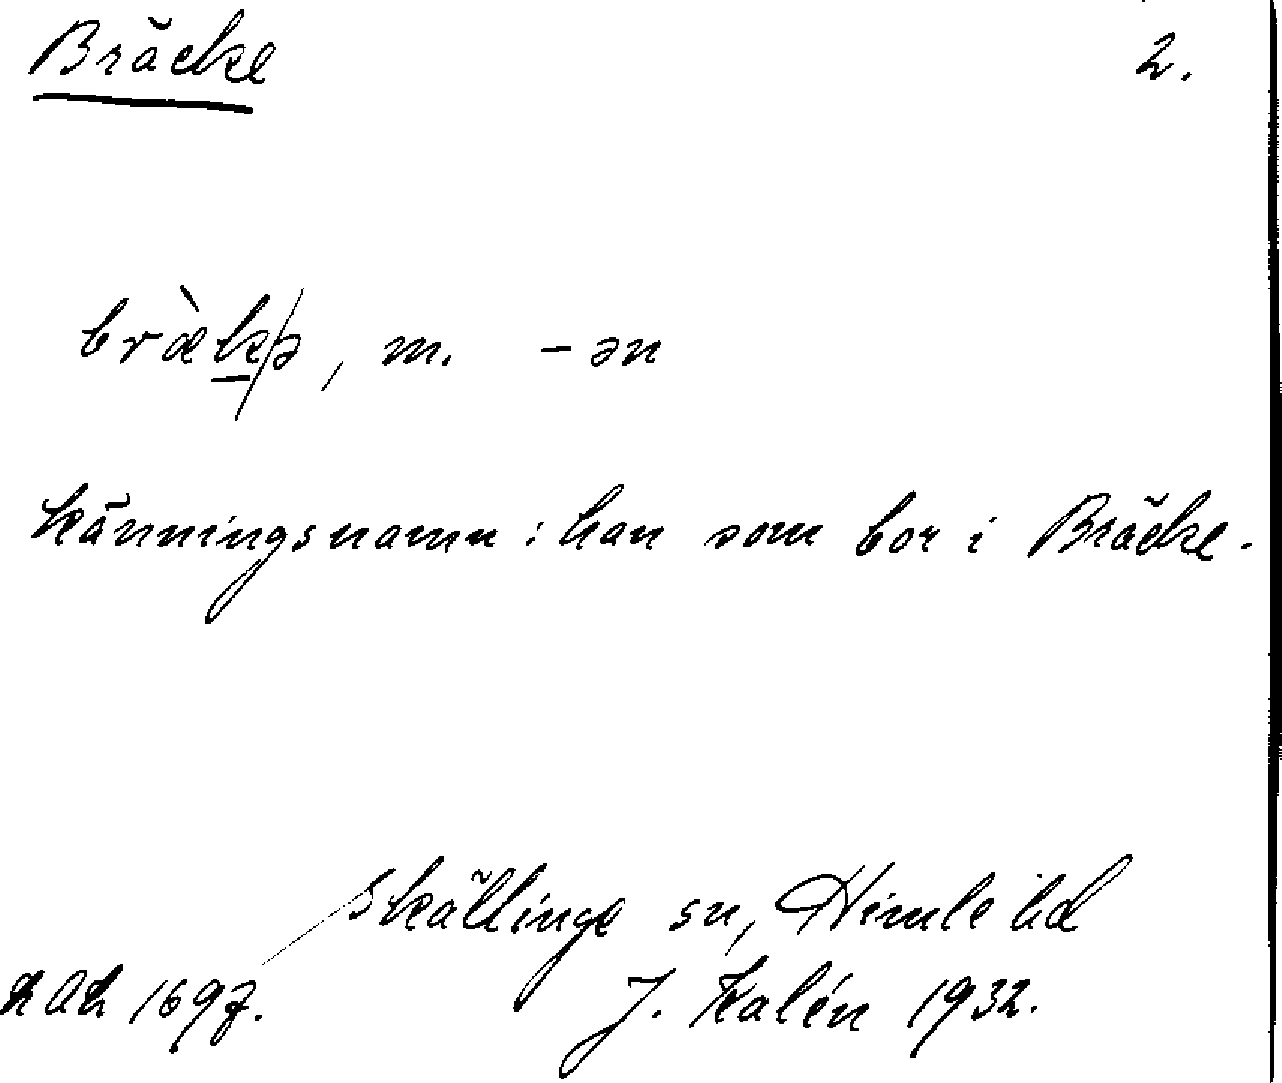 Bräcke 2.
bræ̀kə, m. -ən
känningsnamn: han som bor i Bräcke.
Skällinge sn, Himle hd
1697. J. Kalén 1932.